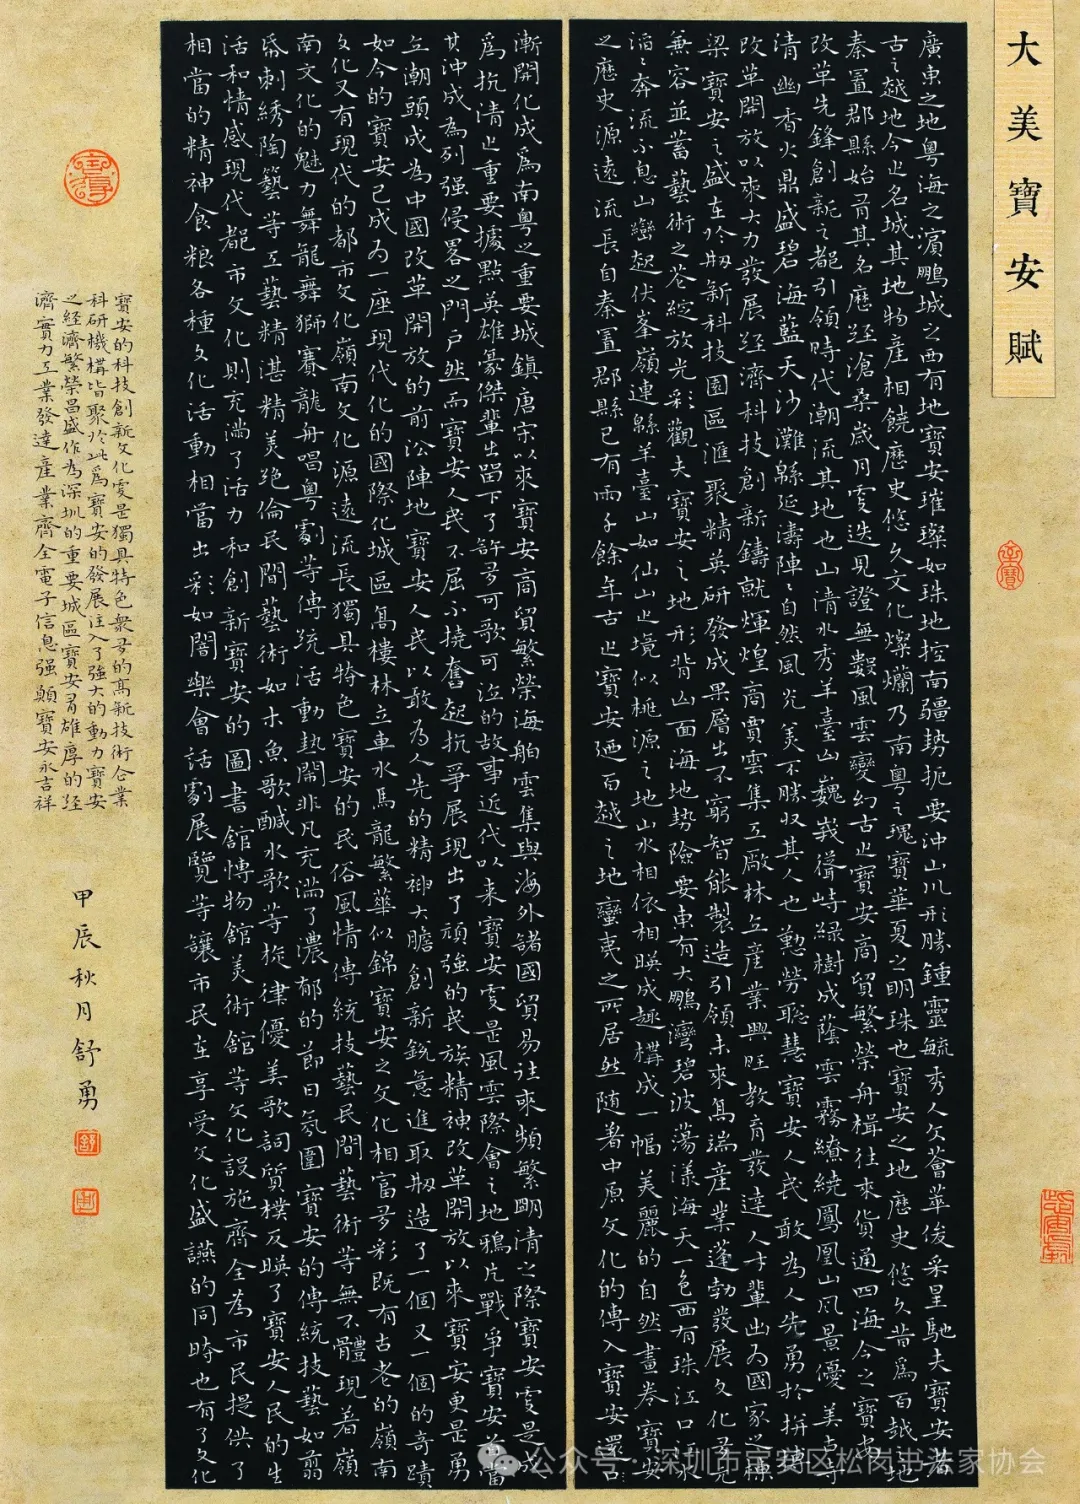 大美寶安賦
廣東之地粵海之濱鵬城之西有地寶安璀璨如珠地控南疆勢扼要沖山川形勝鍾靈毓秀人文薈萃俊采星馳夫寶安者
古之越地今之名城其地物產相饒歷史悠久文化燦爛乃南粵之瑰寶華夏之明珠也寶安之地歷史悠久昔為百越地
秦置郡縣始有其名歷經滄桑歲月變迭見證無數風雲變幻古之寶安商貿繁榮舟楫往來貨通四海今之寶安
改革先鋒創新之都引領時代潮流其地也山清水秀羊臺山巍峩聳峙綠樹成蔭雲霧繚繞鳳凰山風景優美古寺
清幽香火鼎盛碧海藍天沙灘緜延濤陣之自然風光美不勝収其人也懃勞聡慧寶安人民敢為人先勇於拼搏
改革開放以來大力發展經濟科技創新鑄就煇煌商賈雲集工厰林立產業興旺教育發達人才輩出為國家之棟
梁寶安之盛在於刱新科技園區滙聚精英研發成果層出不窮智能製造引領未來高端產業蓬勃發展文化多元
兼容並蓄藝術之花綻放光彩觀夫寶安之地形背山面海地势險要東有大鵬灣碧波蕩漾海天一色西有珠江口江水
滔々奔流不息山巒起伏峯嶺連緜羊臺山如仙山之境似桃源之地山水相依相暎成趣構成一幅美麗的自然畫卷寶安
之歷史源遠流長自秦置郡縣已有兩千餘年古之寶安廼百越之地蠻夷之所居然随著中原文化的傳入寶安還
漸開化成為南粵之重要城鎮唐宋以來寶安商貿繁榮海舶雲集與海外諸國貿易往來頻繁明清之際寶安更是成
為抗清之重要據點英雄豪傑輩出留下了許多可歌可泣的故事近代以来寶安更是風雲際會之地鴉片戰爭寶安首當
其沖成為列强侵畧之門户然而寶安人民不屈不撓奮起抗爭展現出了頑強的民族精神改革開放以來寶安更是勇
立潮頭成為中國改革開放的前沿陣地寶安人民以敢為人先的精神大膽創新銳意進取刱造了一個又一個的奇蹟
如今的寶安已成為一座現代化的國際化城區高樓林立車水馬龍繁華似錦寶安之文化相富多彩既有古老的嶺南
文化又有現代的都市文化嶺南文化源遠流長獨具特色寶安的民俗風情傳統技藝民間藝術等無不體現着嶺
南文化的魅力舞龍舞獅賽龍舟唱粵劇等傳统活動熱鬧非凡充滿了濃郁的節日氛圍寶安的傳統技藝如剪
帋刺綉陶藝等工藝精湛精美绝倫民間藝術如木魚歌鹹水歌等旋律優美歌詞質樸反暎了寶安人民的生
活和情感現代都市文化則充滿了活力和創新寶安的圖書館博物館美術館等文化設施齊全為市民提供了
相當的精神食粮各種文化活動相當出彩如閤樂會話劇展覽等讓市民在享受文化盛讌的同時也有了文化
寶安的科技創新文化更是獨具特色衆多的高新技術企業
科研機構皆聚於此為寶安的發展注入了強大的動力寶安
之經濟繁榮昌盛作為深圳的重要城區寶安有雄厚的經
濟實力工業發達產業齊全電子信息强顛寶安永吉祥
甲辰秋月舒勇
公众号·深圳市宝安区松岗书法家协会